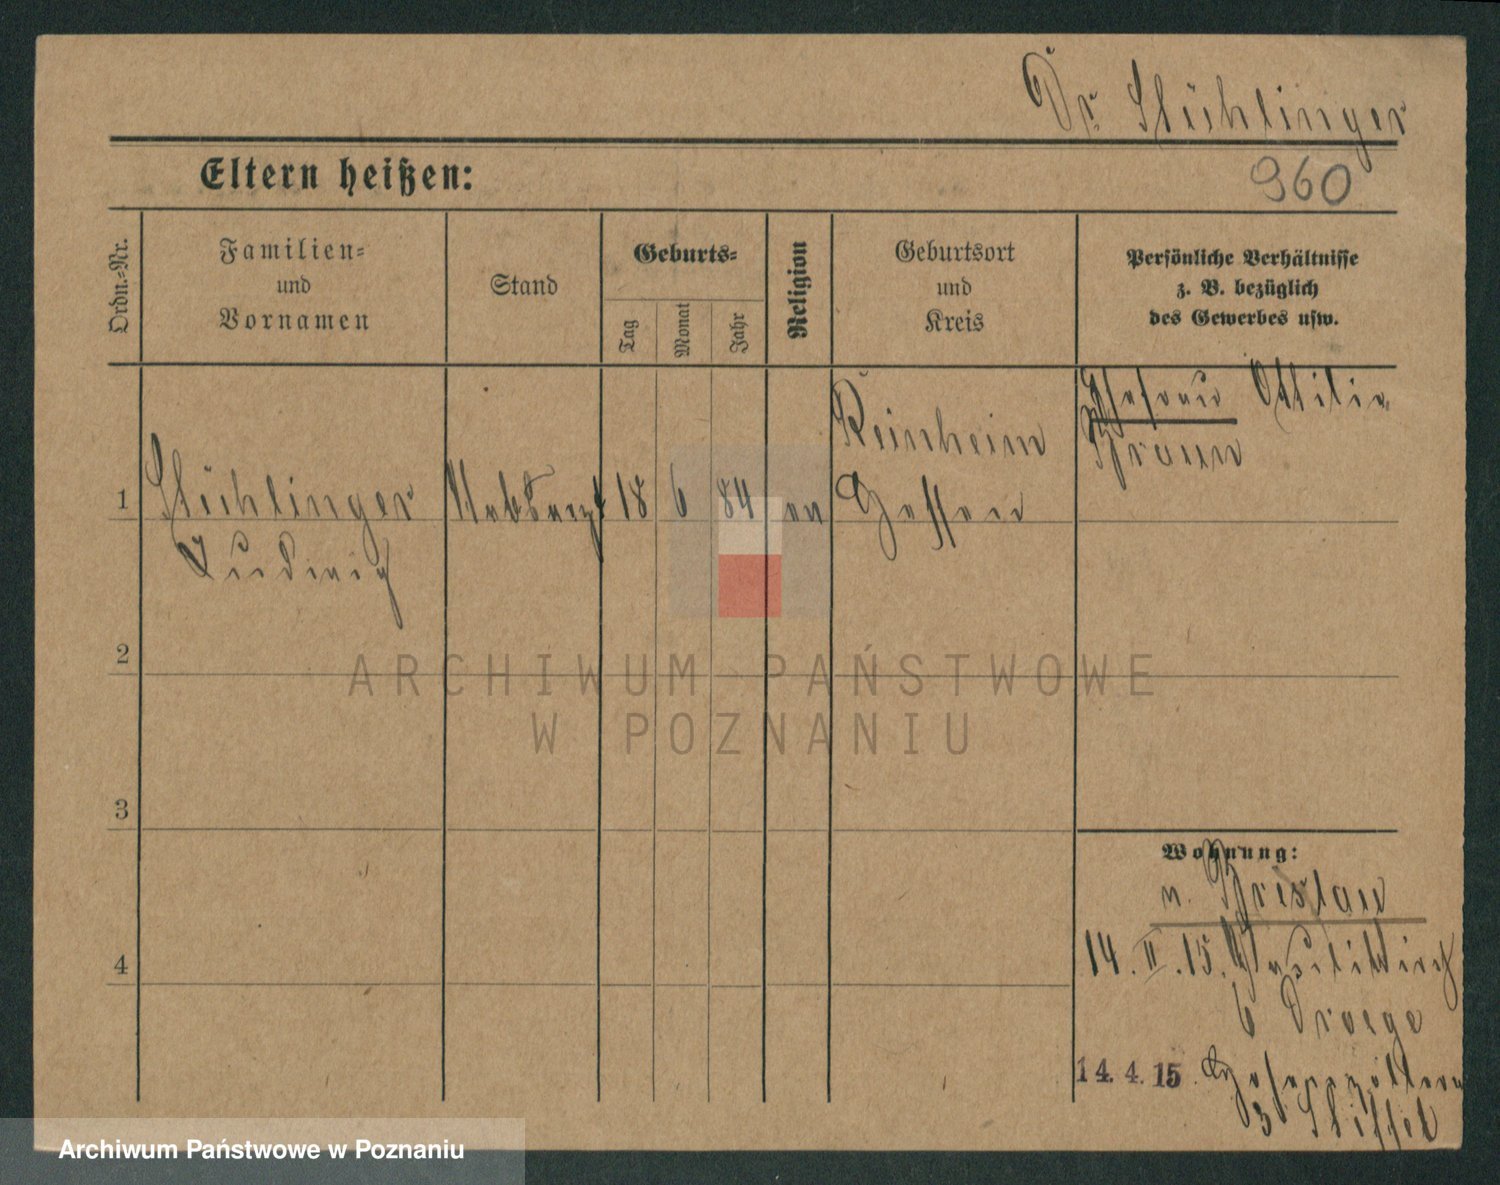 Dr. Stühlinger
Eltern heißen:
960
Ordn.-Nr.
Familien-
und
Vornamen
Stand
Geburts-
Tag
Monat
Jahr
Religion
Geburtsort
und
Kreis
Persönliche Verhältnisse
z. B. bezüglich
des Gewerbes usw.
1
Stühlinger
Ludwig
18
6
84
ev
Reinheim
Hessen
Ehefrau Ottilie
Braun
2
ARCHIWUM PAŃSTWOWE
W POZNANIU
3
4
Wohnung:
n. Breslau
14. II. 15.
6 Droege
14. 4. 15 Hohenzollern
3
Archiwum Państwowe w Poznaniu